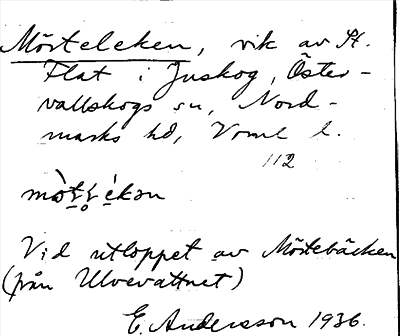 Mörteleken, vik av St.
Flat i Juskog, Öster-
vallskogs sn, Nord-
marks hd, Vrml l.
112
Vid utloppet av Mörtebäcken
(från Ulvevattnet)
E. Andersson 1936.